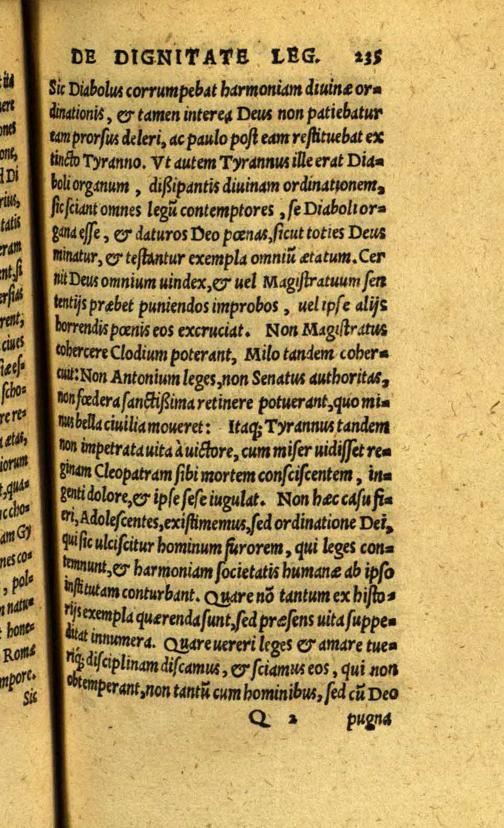 DE DIGNITATE LEG. 235
Sic Diabolus corrumpebat harmoniam diuinæ or=
dinationis, & tamen interea Deus non patiebatur
eam prorsus deleri, ac paulo post eam restituebat ex
tincto Tyranno. Vt autem Tyrannus ille erat Dia=
boli organum, dißipantis diuinam ordinationem,
sic sciant omnes legũ contemptores, se Diaboli or=
gana esse, & daturos Deo pœnas, sicut toties Deus
minatur, & testantur exempla omniũ ætatum. Cer
nit Deus omnium uindex, & uel Magistratuum sen
tentijs præbet puniendos improbos, uel ipse alijs
horrendis pœnis eos excruciat. Non Magistratus
cohercere Clodium poterant, Milo tandem coher=
cuit: Non Antonium leges, non Senatus authoritas,
non fœdera sanctißima retinere potuerant, quo mi=
nus bella ciuilia moueret: Itaq; Tyrannus tandem
non impetrata uita à uictore, cum miser uidisset re=
ginam Cleopatram sibi mortem consciscentem, in=
genti dolore, & ipse sese iugulat. Non hæc casu fi=
eri, Adolescentes, existimemus, sed ordinatione Dei,
qui sic ulciscitur hominum furorem, qui leges con=
temnunt, & harmoniam societatis humanæ ab ipso
institutam conturbant. Quare nõ tantum ex histo=
rijs exempla quærenda sunt, sed præsens uita suppe=
ditat innumera. Quare uereri leges & amare tue=
riq; disciplinam discamus, & sciamus eos, qui non
obtemperant, non tantũ cum hominibus, sed cũ Deo
Q 2 pugna